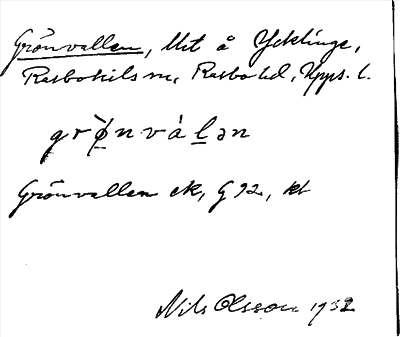 Grönvallen, Ult å Ycklinge,
Rasbokils sn, Rasbo hd, Upps. l.
grø̀nvàlən
Grönvallen ek, G 92, kt
Nils Olsson 1932